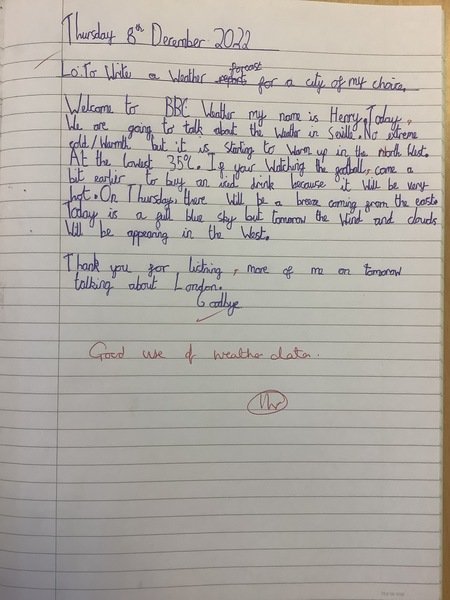 Thursday 8th December 2022
forcast
Lo: To Write a Weather report for a city of my choice,
Welcome to BBC Weather my name is Henry. Today,
We are going to talk about the Weather in Seville. No extreme
cold/Warmth but it is starting to Warm up in the North West.
At the lowest 35°c. If your Watching the football, come a
bit earlier to buy an iced drink because it Will be very
hot. On Thursday, there Will be a breeze coming from the east.
Today is a full blue sky but tomorow the Wind and clouds
Will be appearing in the West.
Thank you for listning, more of me on tomorow
talking about London.
Goodbye
Good use of weather data.